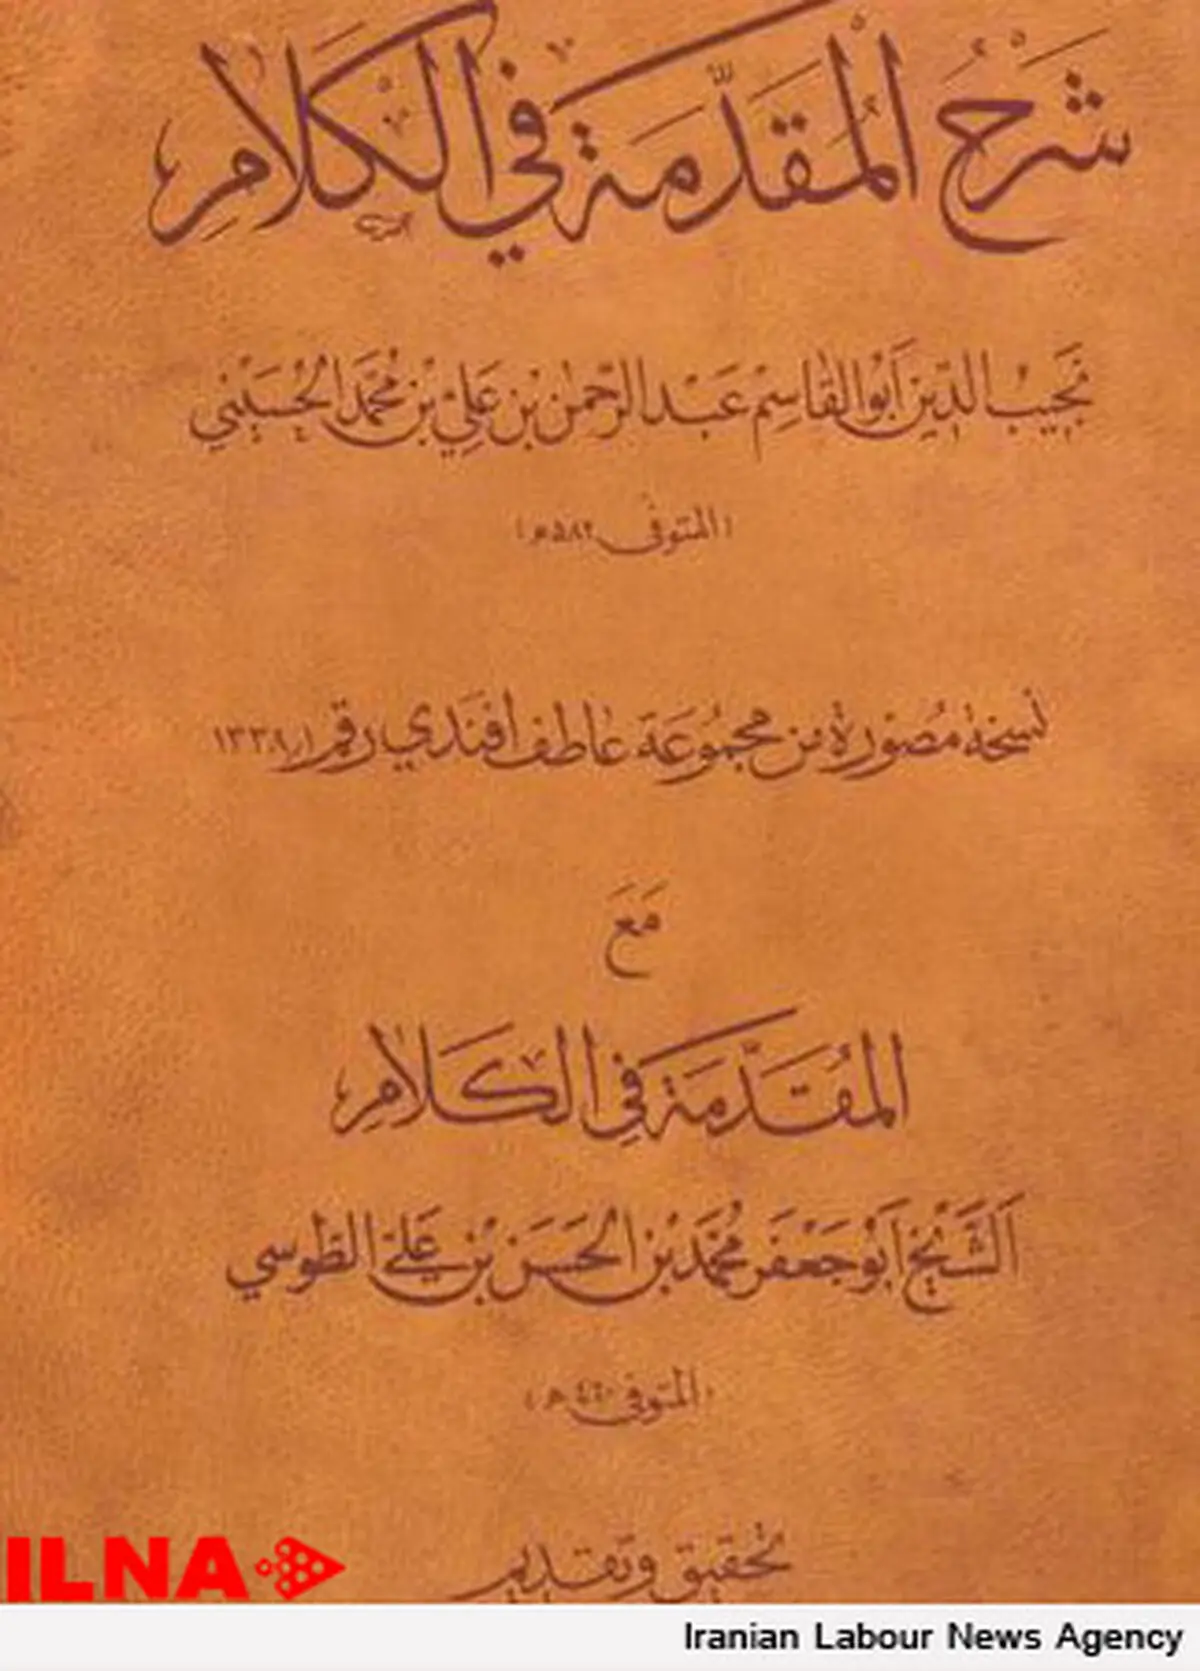 شَرْحُ المُقَدِّمَة في الكَلامِ
نَجيبُ الدّين أَبوُ القاسِمْ عَبْد الرَّحمٰن بْن عَليِّ بْن مُحَمَّد الحُسَيْني
(المتوفى ٥٨٢ هـ)
نسخة مُصَوَّرة من مجمُوعَة عاطف افَندي رقم ١٣٣٩/١
مَعَ
المُقَدِّمَة فِي الكَلامِ
اَلشَّيْخ اَبوُ جَعْفَر مُحَمَّد بْن الحَسَن بْن عَلي الطّوسي
(المتوفى ٤٦٠ هـ)
تحقيق وتقديم
ILNA
Iranian Labour News Agency